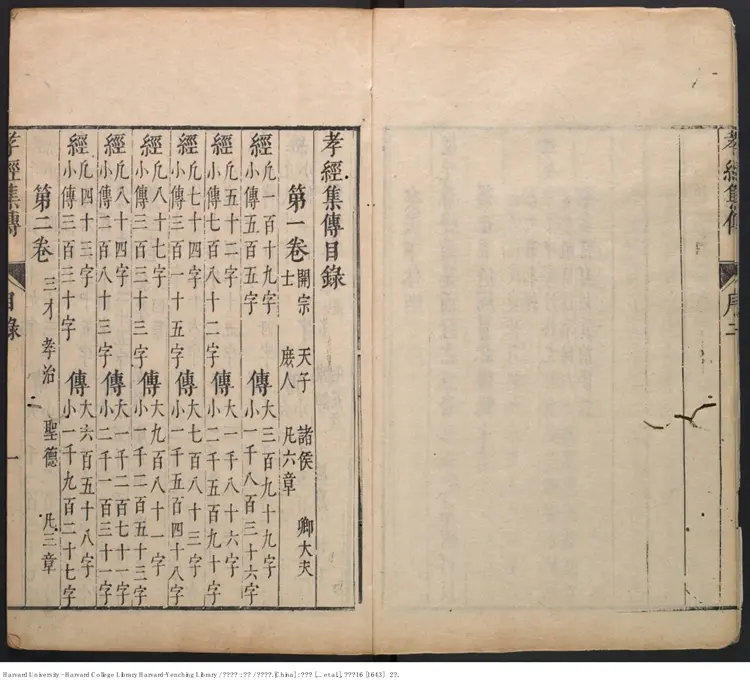 孝經集傳 序二
孝經集傳目錄
第一卷 開宗 天子 諸侯 卿大夫
士 庶人 凡六章
經 凡一百十九字 小傳五百五字 傳 大三百九十九字 小一千八百三十六字
經 凡五十二字 小傳七百八十二字 傳 大一千八十六字 小二千五百九十字
經 凡七十四字 小傳三百一十五字 傳 大七百八十三字 小一千五百四十八字
經 凡八十七字 小傳三百三十三字 傳 大九百八十一字 小一千二百五十三字
經 凡八十四字 小傳二百八十三字 傳 大一千二百七十一字 小二千一百三十一字
經 凡四十三字 小傳三百三十字 傳 大六百五十八字 小一千九百二十七字
第二卷 三才 孝治 聖德 凡三章
孝經集傳 目錄 一
Harvard University - Harvard College Library Harvard-Yenching Library / ???? : ?? / ????. [China] : ??? [... et al.], ???16 [1643] : 2?.